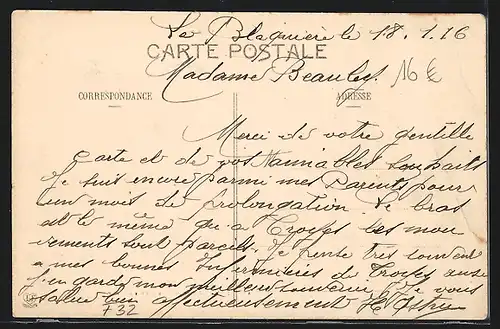 La Blaquière le 18.1.16
CARTE POSTALE
Madame 16 €
CORRESPONDANCE ADRESSE
Merci de votre gentille
carte et de vos aimables souhaits
Je suis encore parmi mes Parents pour
un mois de prolongation. Le bras
est le même qu'a Troyes les mou
vements sont pareils. Je pense très souvent
a mes bonnes Infirmières de Troyes aussi
j'en garde mon meilleur souvenir Je vous
salue bien affectueusement
732